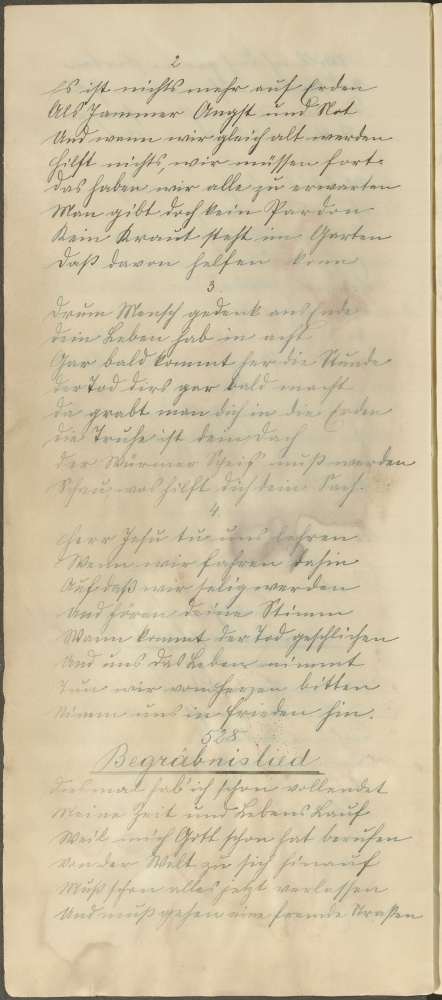 2
Es ist nichts mehr auf Erden
Als Jammer Angst und Not
Und wenn wir gleich alt werden
Hilft nichts, wir müssen fort.
Das haben wir alle zu erwarten
Man gibt doch kein Pardon
Kein Kraut steht im Garten
Daß davon helfen kann
3.
Drum Mensch gedenk ans Ende
dein Leben hab in acht
Gar bald kommt her die Stunde
der Tod dirs gar bald macht
da grabt man dich in die Erden
die Truhe ist dein Dach
der Würmer Speis muß werden
Schau, was hilft dich dein Sach.
4.
Herr Jesu tu uns lehren
Wenn wir fahren dahin
Auf daß wir selig werden
und hören deine Stimm
Wann kommt der Tod geschlichen
And uns das Leben nimmt
Tun wir vom Herzen bitten
Nimm uns in Frieden hin.
528
Begräbnislied
Diesmal hab ich schon vollendet
Meine Zeit und Lebens Lauf
Weil mich Gott schon hat berufen
von der Welt zu sich hinauf
Muß schon alles jetzt verlassen
Und muß gehen eine fremde Straßen